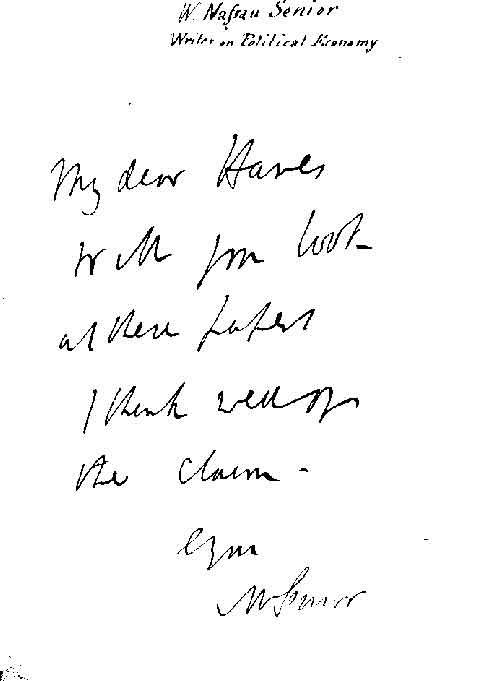 W. Nassau Senior
Writer on Political Economy
My dear Hawes
Will you look
at these papers
I think well of
the claim -
NSenior